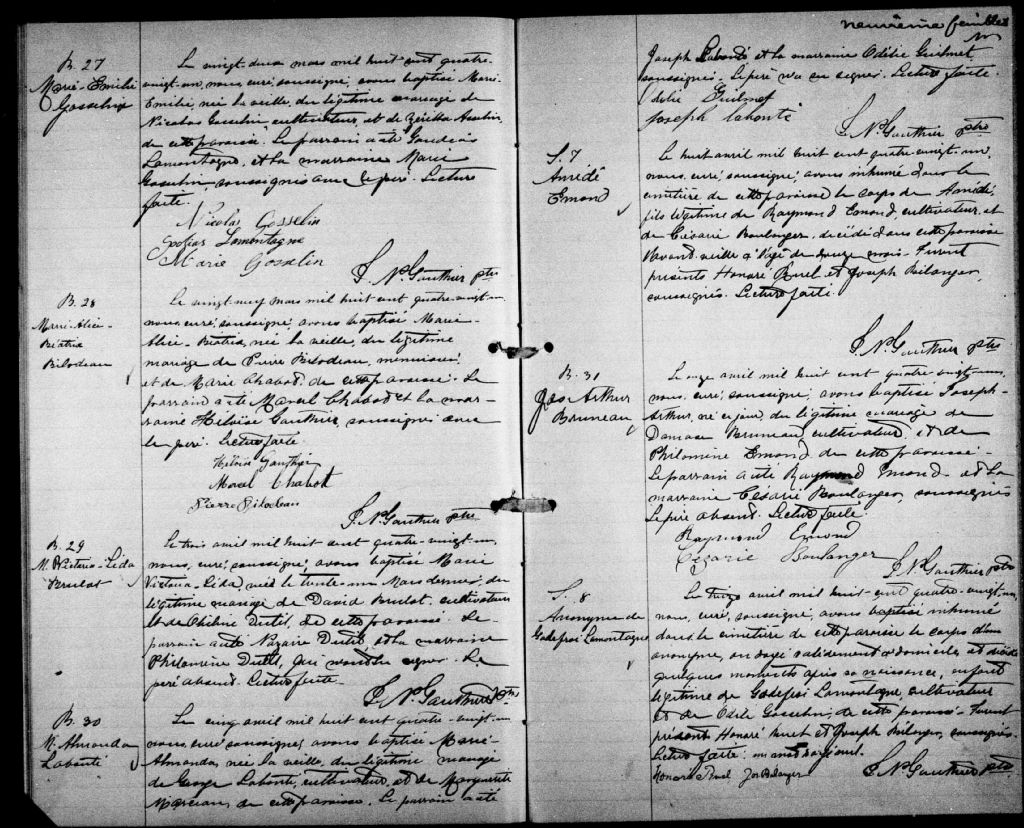 B. 27
Marie-Emilie
Gosselin
Le vingt deux mars mil huit cent quatre-
vingt-un, nous, curé, soussigné, avons baptisé Marie-
Emilie, née la veille, du légitime mariage de
Nicolas Gosselin cultivateur, et de
de cette paroisse. Le parrain a été
Lamontagne, et la marraine Marie
Gosselin soussignés avec le père. Lecture
faite.
Nicolas Gosselin
Lamontagne
Marie Gosselin
J. N. Gauthier ptre
B. 28
Marie-Alice-
Béatrix
Bilodeau
Le vingt neuf mars mil huit cent quatre-vingt-un,
nous, curé, soussigné, avons baptisé Marie-
Alice-Béatrix, née la veille, du légitime
mariage de Pierre Bilodeau, menuisier,
et de Marie Chabot, de cette paroisse. Le
parrain a été Marcel Chabot et la mar-
raine Héloïse Gauthier soussignés avec
le père. Lecture faite.
Héloïse Gauthier
Marcel Chabot
Pierre Bilodeau
J. N. Gauthier ptre
B. 29
M. Victoria-Lida
Brulot
Le trois avril mil huit cent quatre-vingt-un,
nous, curé, soussigné, avons baptisé Marie
Victoria-Lida, née le trente-un Mars dernier, du
légitime mariage de David Brulot, cultivateur
et de Dutil, de cette paroisse. Le
parrain a été Nazaire Dutil, et la marraine
Philomène Dutil, signer. Le
père absent. Lecture faite.
J. N. Gauthier ptre
B. 30
M. Almanda
Labonté
Le cinq avril mil huit cent quatre-vingt-un
nous, curé, soussigné, avons baptisé Marie-
Almanda, née la veille, du légitime mariage
de George Labonté, cultivateur, et de Marguerite
Marceau, de cette paroisse. Le parrain a été
neuvième feuillet
Joseph Labonté et la marraine Odélie Guilmet
soussignés. Le père n'a su signer. Lecture faite.
Odélie Guilmet
Joseph Labonté
J. N. Gauthier ptre
S. 7
Amédé
Emond
Le huit avril mil huit cent quatre-vingt-un,
nous, curé, soussigné, avons inhumé dans le
cimetière de cette paroisse le corps de Amédé,
fils légitime de Raymond Emond, cultivateur, et
de Césarie Boulanger, décédé dans cette paroisse
l'avant-veille à l'âge de douze mois. Furent
présents Honoré Ruel et Joseph Bélanger,
soussignés. Lecture faite.
J. N. Gauthier ptre
B. 31
Jos. Arthur
Bruneau
Le onze avril mil huit cent quatre-vingt-un,
nous, curé, soussigné, avons baptisé Joseph-
Arthur, né ce jour, du légitime mariage de
Damase Bruneau, cultivateur, et de
Philomène Emond de cette paroisse.
Le parrain a été Raymond Emond et la
marraine Césarie Boulanger, soussignés
Le père absent. Lecture faite.
Raymond Emond
Césarie Boulanger
J. N. Gauthier ptre
S. 8
Anonyme de
Godefroi Lamontagne
Le avril mil huit-cent quatre-vingt-un,
nous, curé, soussigné, avons baptisé inhumé
dans le cimetière de cette paroisse le corps d'un
anonyme, ondoyé validement à domicile, et décédé
quelques moments après sa naissance, enfant
légitime de Godefroi Lamontagne, cultivateur
et de Odile Gosselin, de cette paroisse. Furent
présents Honoré Ruel et Joseph Bélanger, soussignés.
Lecture faite.
Honoré Ruel Jos Belanger
J. N. Gauthier ptre